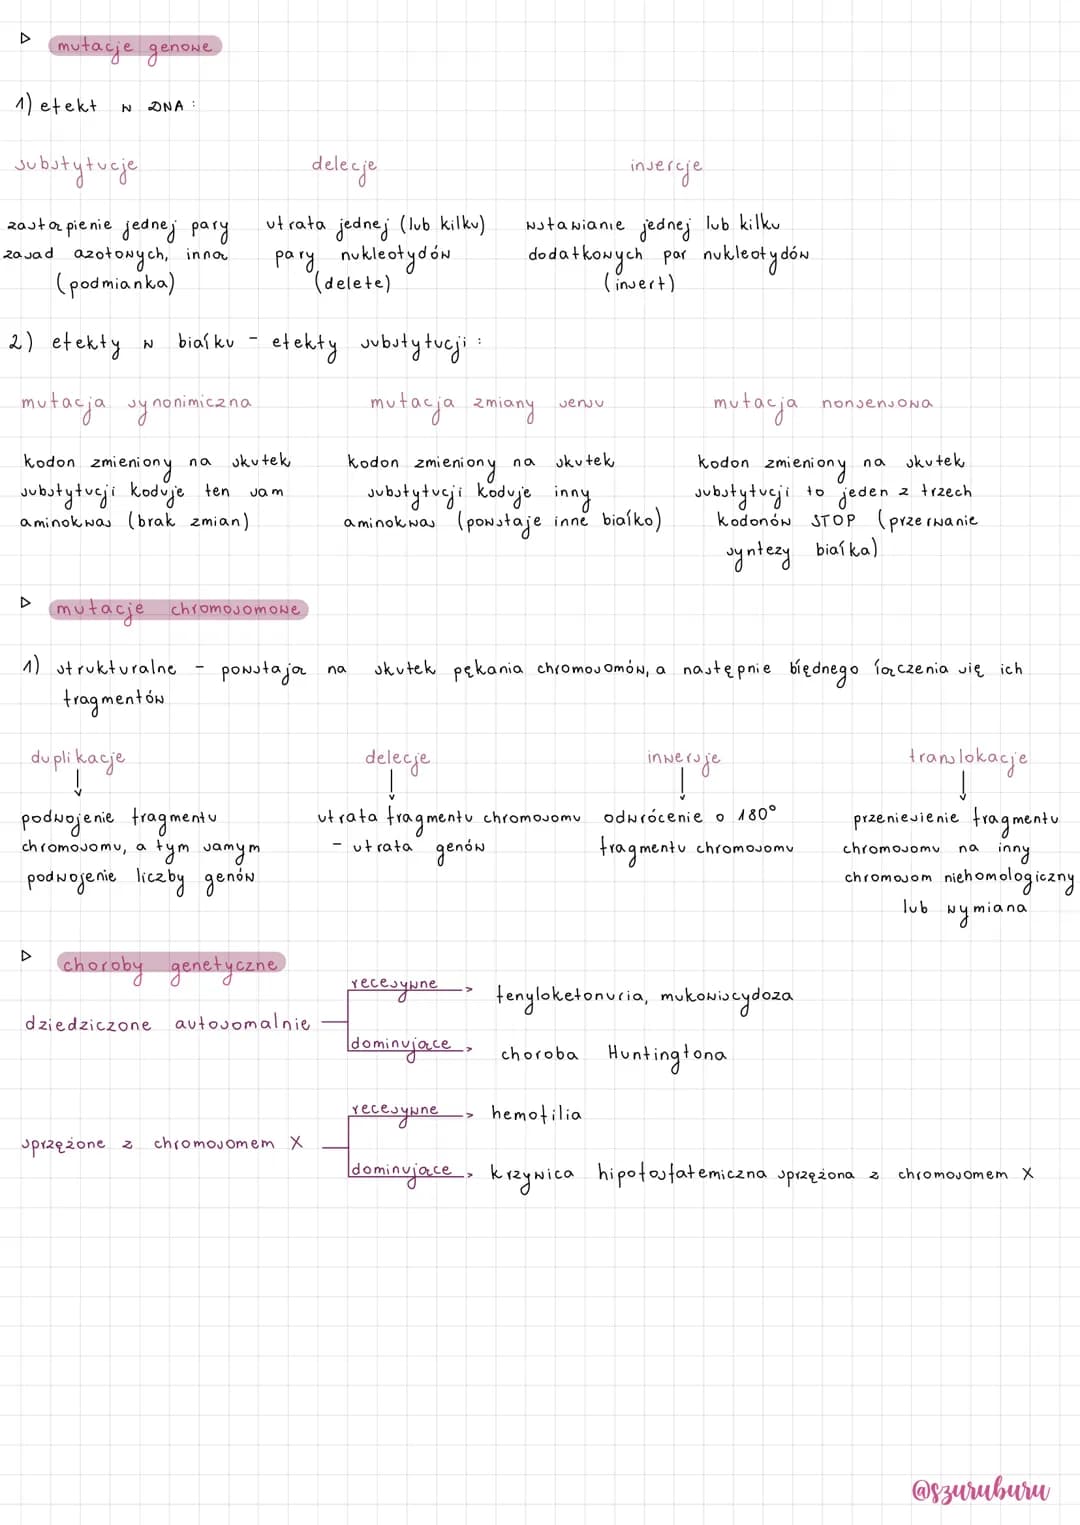 ▷ mutacje genowe
1) efekt w DNA :
substytucje delecje insercje
zastąpienie jednej pary utrata jednej (lub kilku) wstawianie jednej lub kilku
zasad azotowych, inną pary nukleotydów dodatkowych par nukleotydów
(podmianka) (delete) (insert)
2) efekty w białku - efekty substytucji :
mutacja synonimiczna mutacja zmiany sensu mutacja nonsensowa
kodon zmieniony na skutek kodon zmieniony na skutek kodon zmieniony na skutek
substytucji koduje ten sam substytucji koduje inny substytucji to jeden z trzech
aminokwas (brak zmian) aminokwas (powstaje inne białko) kodonów STOP (przerwanie
syntezy białka)
▷ mutacje chromosomowe
1) strukturalne - powstają na skutek pękania chromosomów, a następnie błędnego łączenia się ich
fragmentów
duplikacje delecje inwersje translokacje
podwojenie fragmentu utrata fragmentu chromosomu odwrócenie o 180° przeniesienie fragmentu
chromosomu, a tym samym - utrata genów fragmentu chromosomu chromosomu na inny
podwojenie liczby genów chromosom niehomologiczny
lub wymiana
▷ choroby genetyczne
recesywne fenyloketonuria, mukowiscydoza
dziedziczone autosomalnie
dominujące choroba Huntingtona
recesywne hemofilia
sprzężone z chromosomem X
dominujące krzywica hipofosfatemiczna sprzężona z chromosomem X
@szuruburu